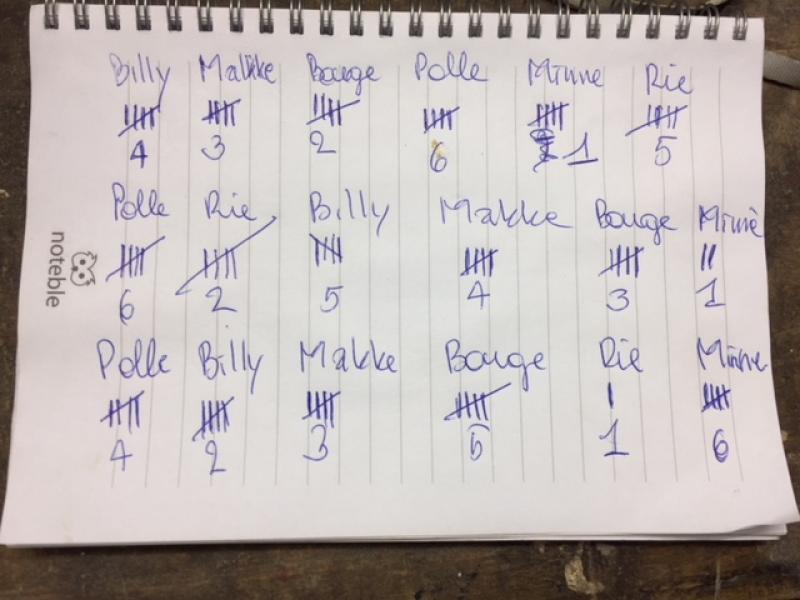 Billy Makke Bouge Polle Minne Rie
4 3 2 6 1 5
Polle Rie Billy Makke Bouge Minne
6 2 5 4 3 1
Polle Billy Makke Bouge Rie Minne
4 2 3 5 1 6
noteble